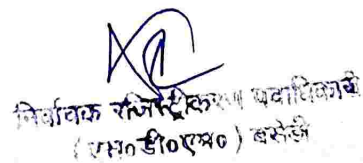 निर्वाचक रजिस्ट्रीकरण पदाधिकारी
(एस०डी०एम०) बसेड़ी